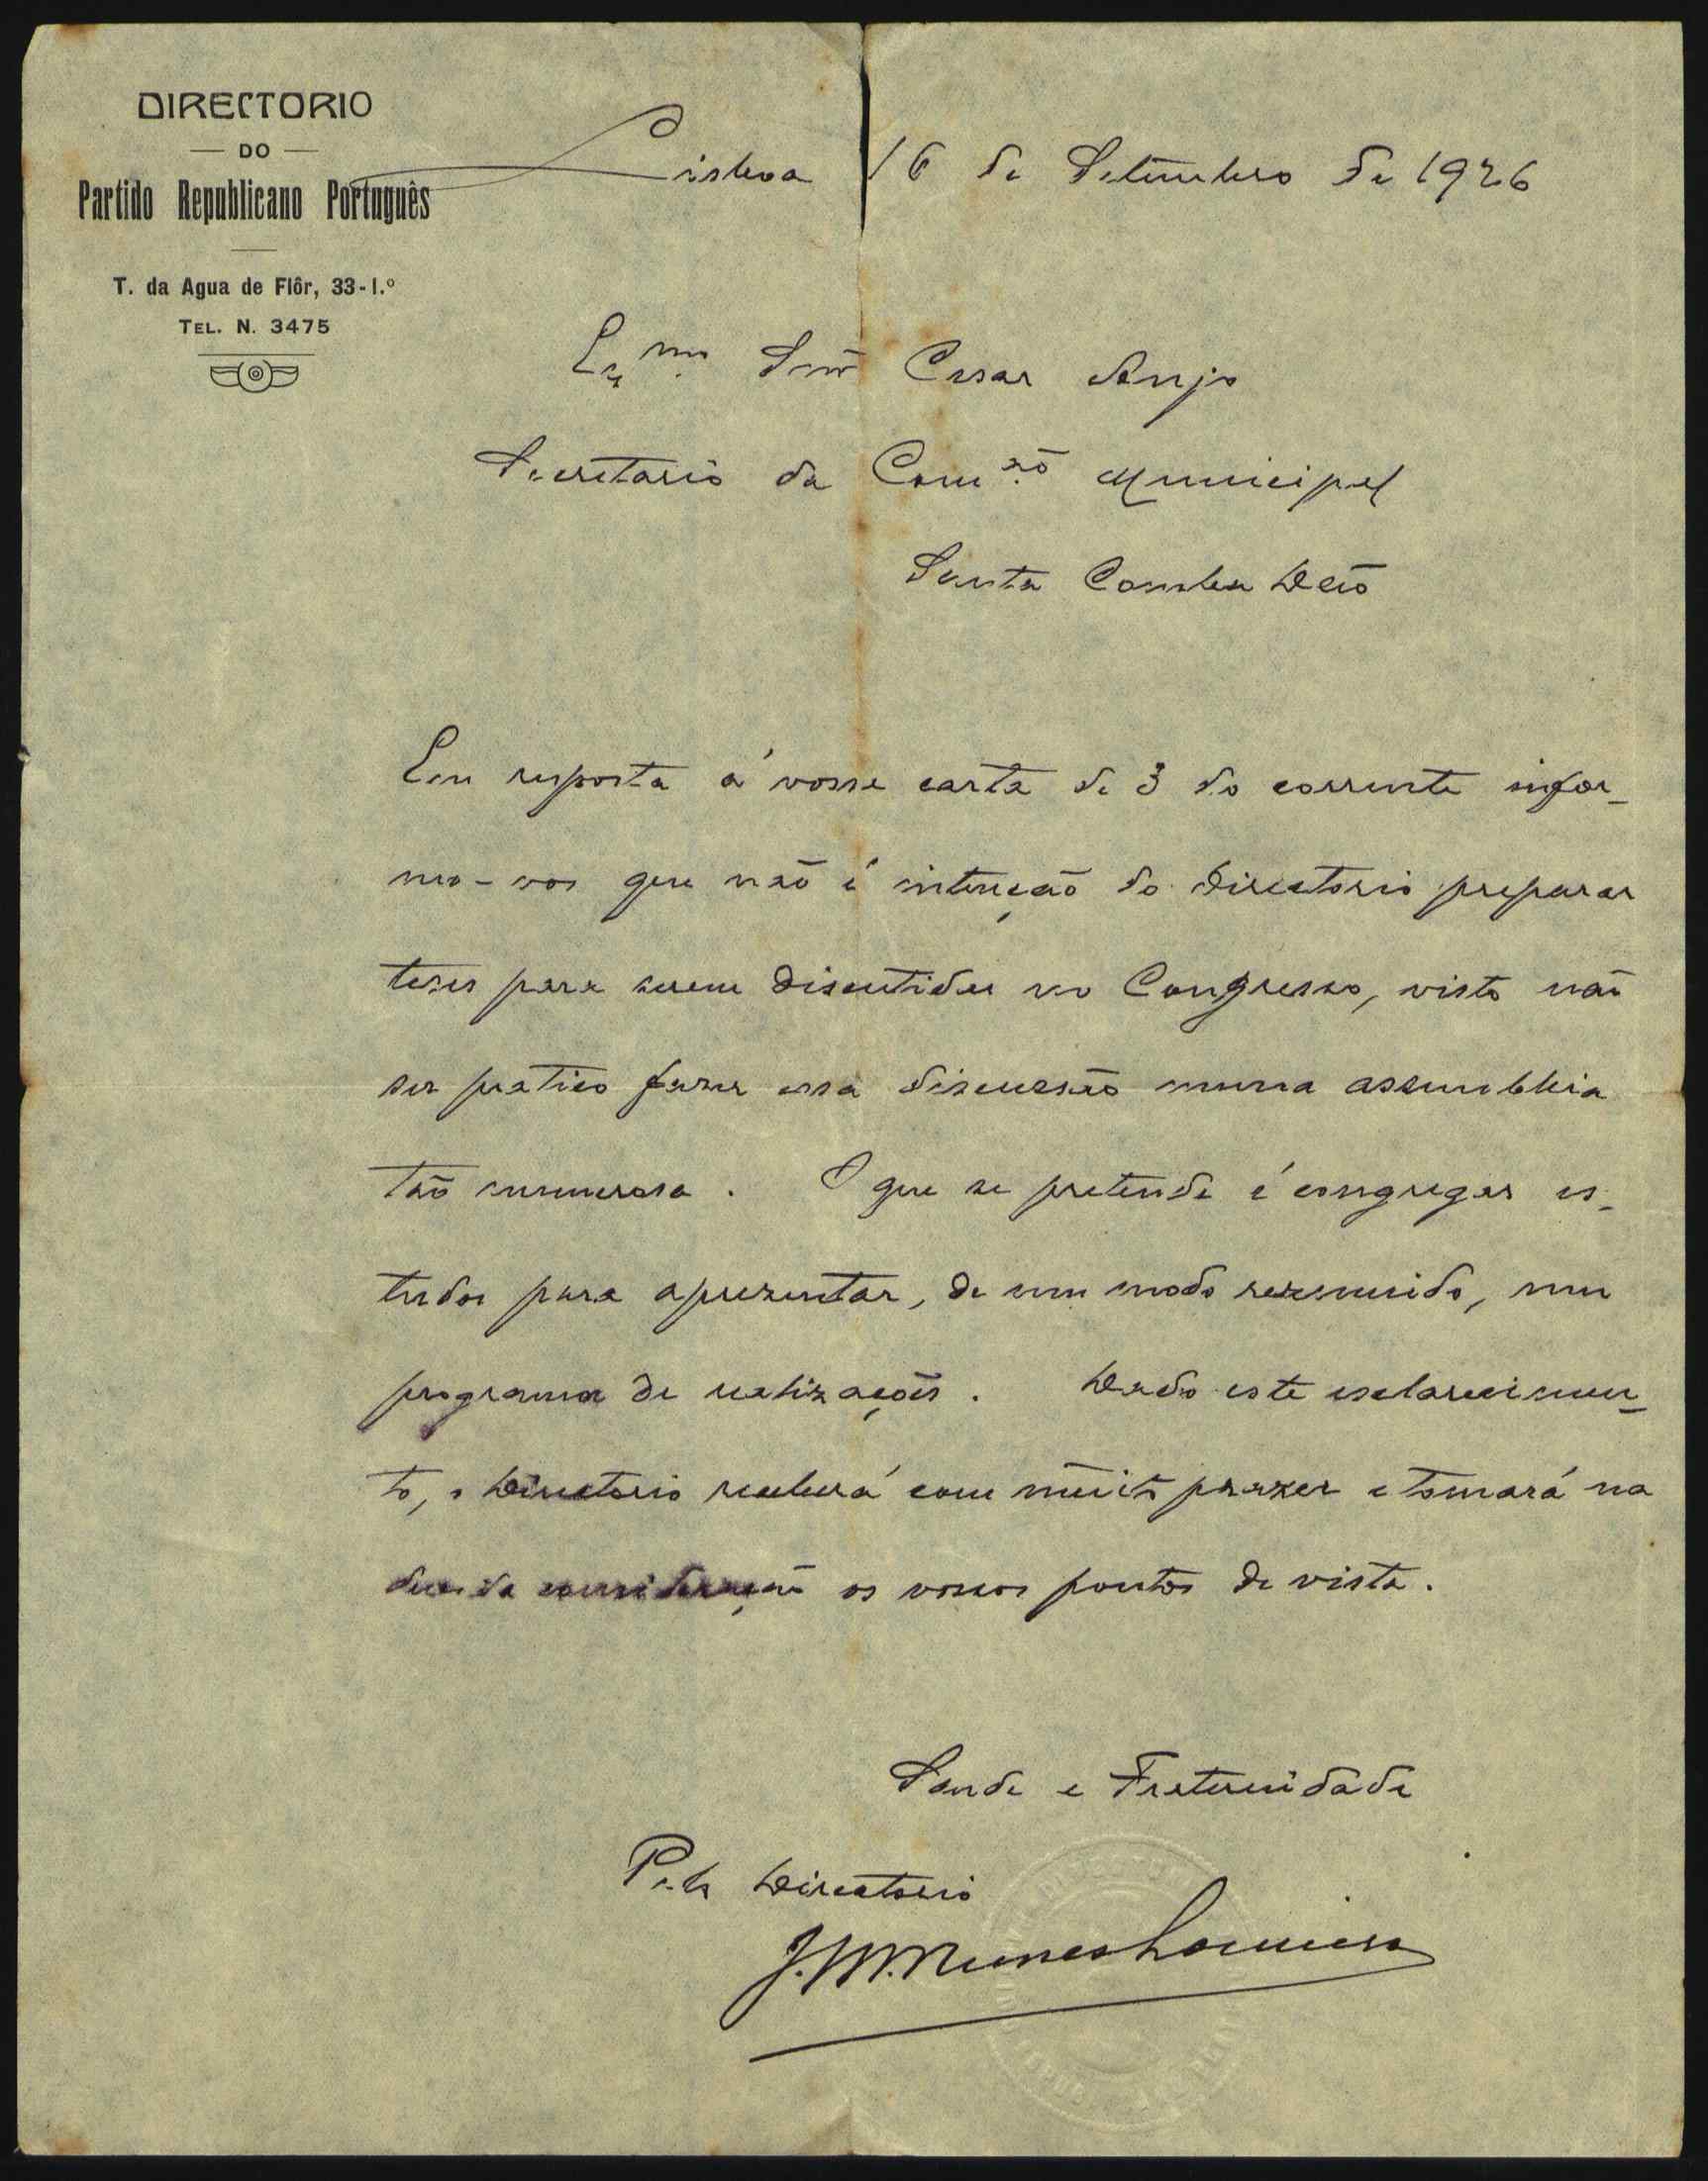 DIRECTORIO
DO
Partido Republicano Português
T. da Agua de Flôr, 33-1.º
TEL. N. 3475
Lisboa 16 de Setembro de 1926
Ex.mo Snr Cesar Anjo
Secretario da Com.ão Municipal
Santa Comba Dão
Em resposta á vossa carta de 3 do corrente infor-
mo-vos que não é intenção do Directorio preparar
teses para serem discutidas no Congresso, visto não
ser pratico fazer essa discussão numa assembleia
tão numerosa. O que se pretende é congregar es-
tudos para apresentar, de um modo resumido, um
programa de realizações. Dado este esclarecimen-
to, o Directorio receberá com muito prazer e tomará na
devida consideração os vossos pontos de vista.
Saude e Fraternidade
Pelo Directorio
J. M. Nunes Loureiro